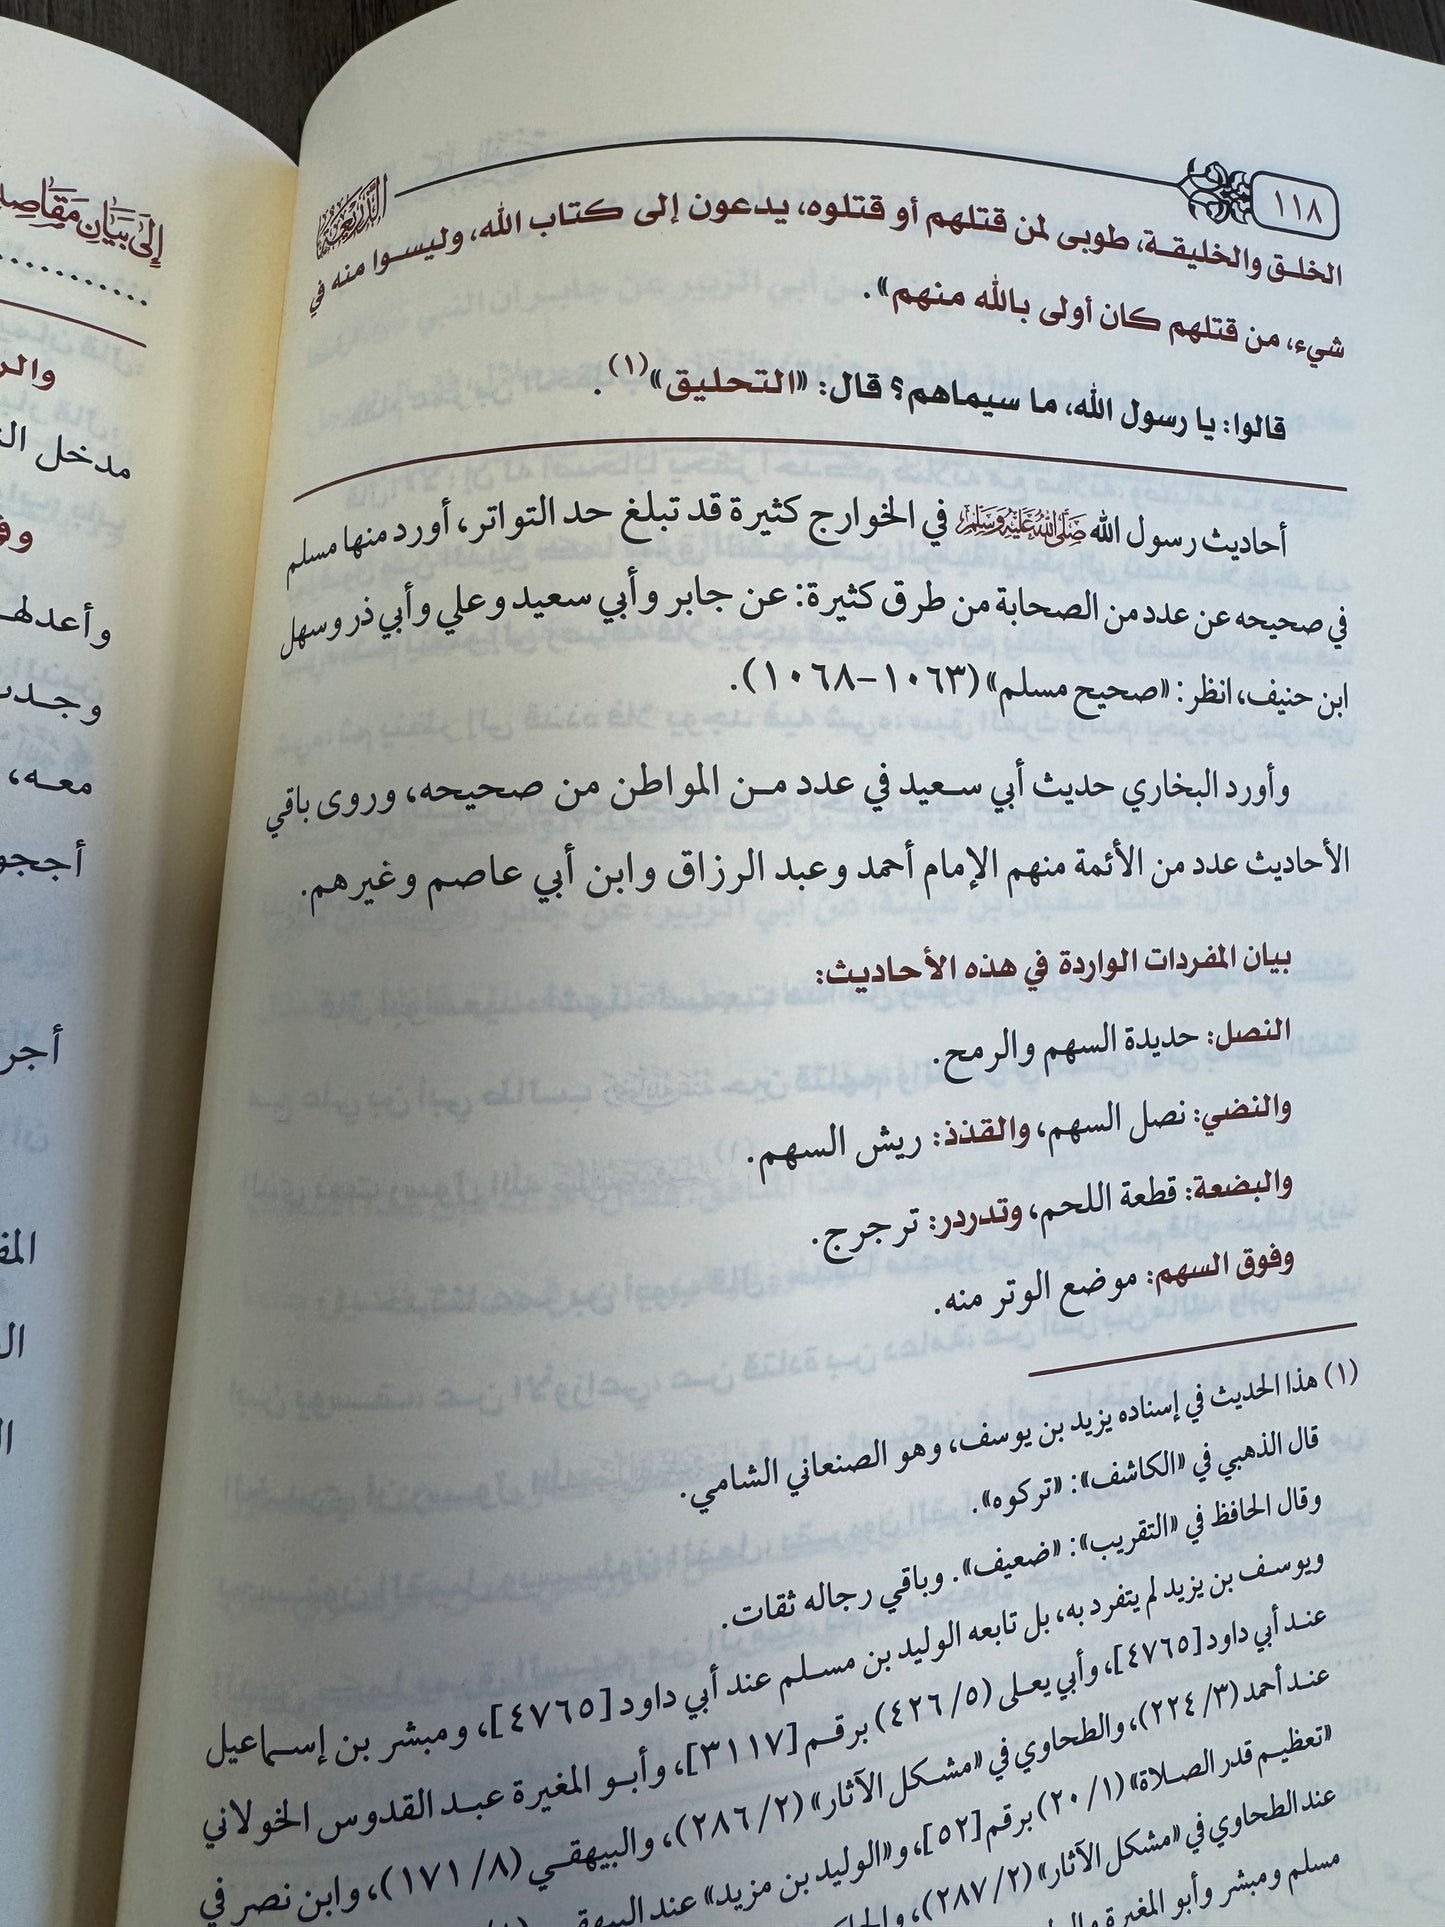 ١١٨
الذريعة
الخلق والخليقة، طوبى لمن قتلهم أو قتلوه، يدعون إلى كتاب الله، وليسوا منه في
شيء، من قتلهم كان أولى بالله منهم».
قالوا: يا رسول الله، ما سيماهم؟ قال: «التحليق»(١).
أحاديث رسول الله صَلَّى اللهُ عَلَيْهِ وَسَلَّمَ في الخوارج كثيرة قد تبلغ حد التواتر، أورد منها مسلم
في صحيحه عن عدد من الصحابة من طرق كثيرة: عن جابر وأبي سعيد وعلي وأبي ذر وسهل
ابن حنيف، انظر: «صحيح مسلم» (١٠٦٣-١٠٦٨).
وأورد البخاري حديث أبي سعيد في عدد من المواطن من صحيحه، وروى باقي
الأحاديث عدد من الأئمة منهم الإمام أحمد وعبد الرزاق وابن أبي عاصم وغيرهم.
بيان المفردات الواردة في هذه الأحاديث:
النصل: حديدة السهم والرمح.
والنضي: نصل السهم، والقذذ: ريش السهم.
والبضعة: قطعة اللحم، وتدردر: ترجرج.
وفوق السهم: موضع الوتر منه.
(١) هذا الحديث في إسناده يزيد بن يوسف، وهو الصنعاني الشامي.
قال الذهبي في «الكاشف»: «تركوه».
وقال الحافظ في «التقريب»: «ضعيف». وباقي رجاله ثقات.
ويوسف بن يزيد لم يتفرد به، بل تابعه الوليد بن مسلم عند أبي داود [٤٧٦٥]، ومبشر بن إسماعيل
عند أبي داود [٤٧٦٥]، وأبي يعلى (٤٢٦/٥) برقم [٣١١٧]، وأبو المغيرة عبد القدوس الخولاني
عند أحمد (٢٢٤/٣)، والطحاوي في «مشكل الآثار» (٢٨٦/٢)، والبيهقي (١٧١/٨)، وابن نصر في
«تعظيم قدر الصلاة» (٢٠/١) برقم [٥٢]، و«الوليد بن مزيد» عند البيهقي
عند الطحاوي في «مشكل الآثار» (٢٨٧/٢)،
مسلم ومبشر وأبو المغيرة
إلى بيان مقاصد
مدخل
وأعدلها
معه،